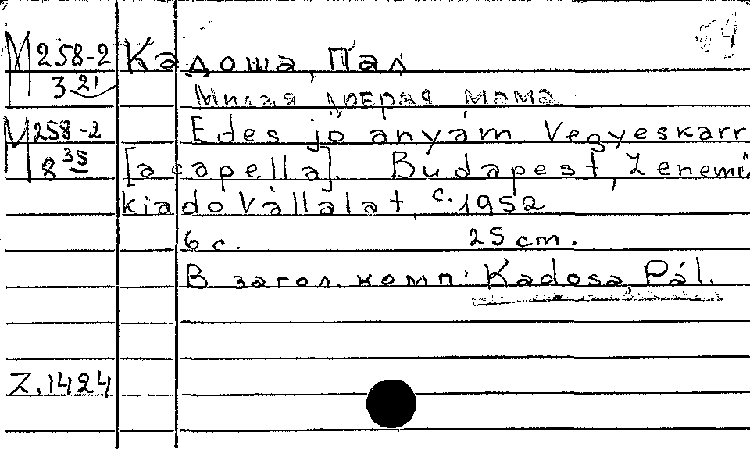 М 258-2 Кадоша, Пал
3 21 Милая добрая мама
М 258-2 Edes jo anyám Vegyeskarr
8 35 [a capella]. Budapest, Zenemü
kiado Vállalat, c. 1952
6 с. 25 cm.
В загол. комп: Kadosa, Pál.
Z.1424